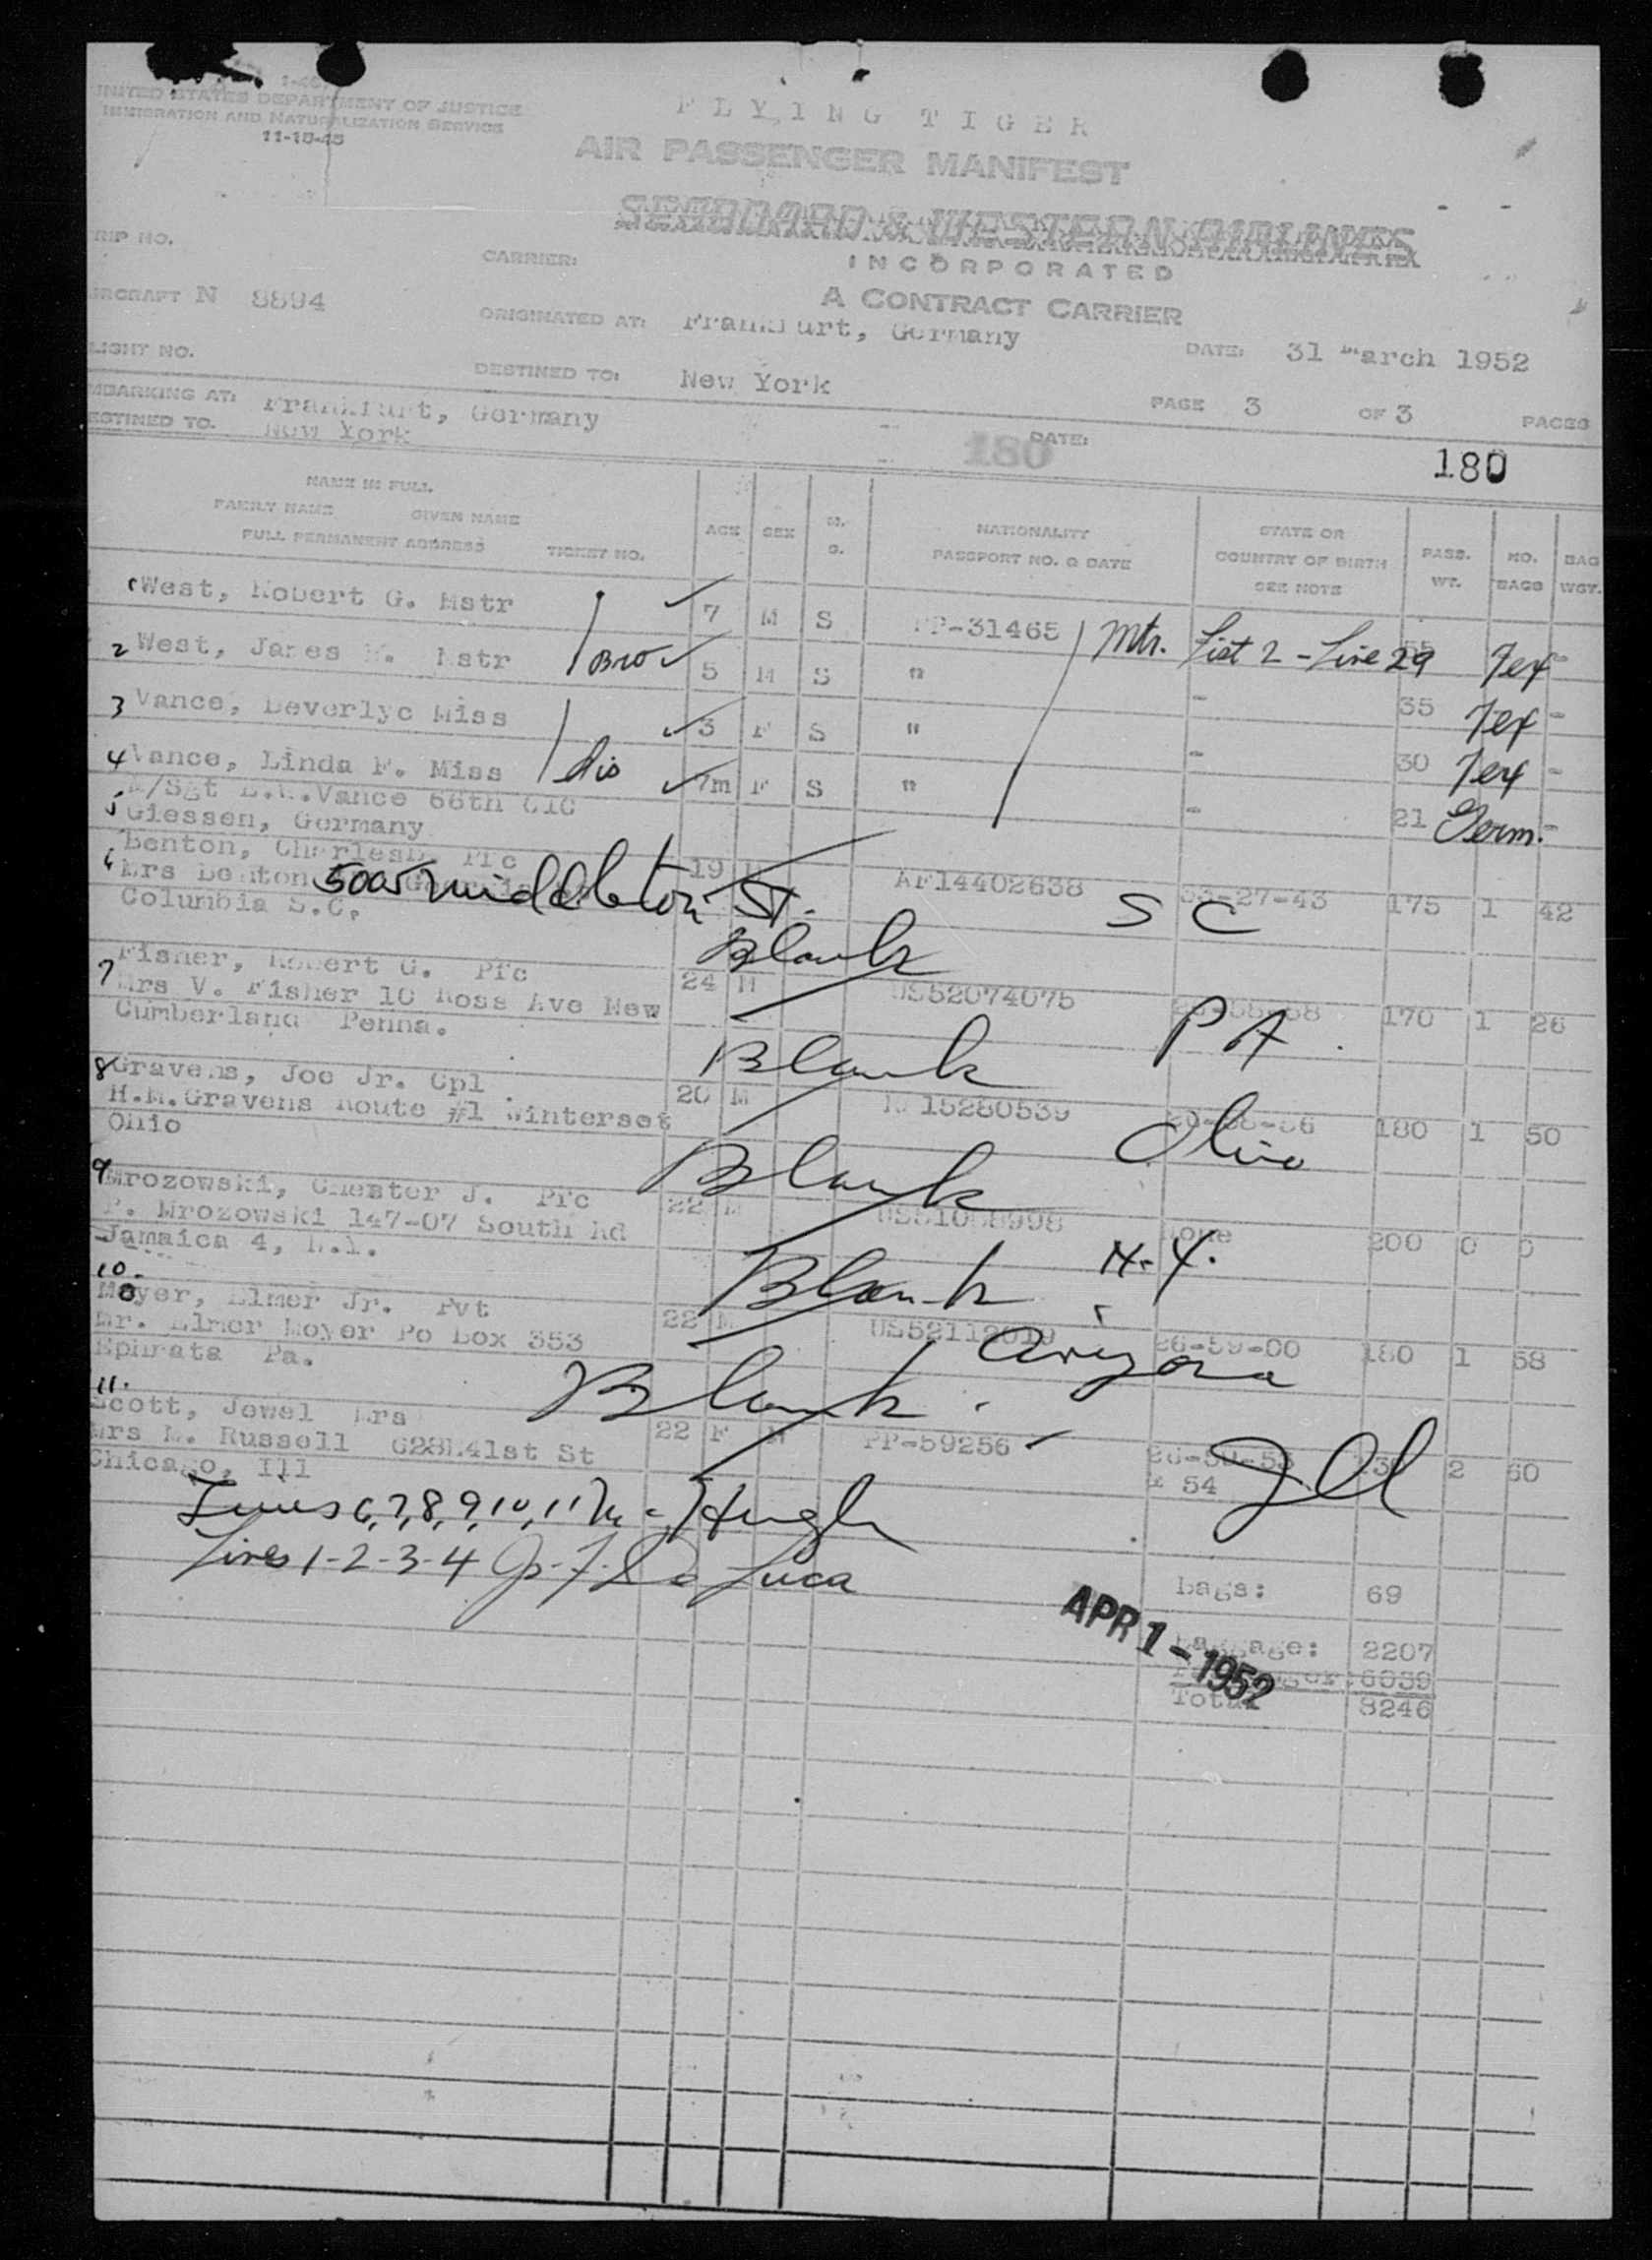 UNITED STATES DEPARTMENT OF JUSTICE
IMMIGRATION AND NATURALIZATION SERVICE
11-15-45
FLYING TIGER
AIR PASSENGER MANIFEST
SEABOARD & WESTERN AIRLINES
INCORPORATED
A CONTRACT CARRIER
RIP NO.
CARRIER:
IRCRAFT N 8894
ORIGINATED AT: Frankfurt, Germany
DATE: 31 March 1952
LIGHT NO.
DESTINED TO: New York
PAGE 3 OF 3 PAGES
MBARKING AT: Frankfurt, Germany
ESTINED TO. New York
DATE:
180
180
NAME IN FULL
FAMILY NAME GIVEN NAME
FULL PERMANENT ADDRESS TICKET NO.
AGE SEX M. S.
NATIONALITY
PASSPORT NO. & DATE
STATE OR
COUNTRY OF BIRTH
SEE NOTE
PASS. WT.
NO. BAGS
BAG WGT.
West, Robert G. Mstr 7 M S PP-31465 Mtr. List 2 - Line 29 Tex -
2 West, James Mstr Bro 5 M S " - 35 Tex -
3 Vance, Beverlyc Miss 3 F S " - 30 Tex -
4 Vance, Linda F. Miss Sis 7m F S " - 21 Germ. -
M/Sgt Vance 66th CIC
5 Giessen, Germany
Benton, Charles Pfc 19 AF14402638 S C 27-43 175 1 42
6 Mrs Benton 5005 middleton St.
Columbia S.C.
Blank
Fisher, Robert G. Pfc 24 M US52074075 PA 170 1 26
7 Mrs V. Fisher 10 Ross Ave New
Cumberland Penna.
Blank
8 Gravens, Joe Jr. Cpl 20 M 15280539 Ohio 180 1 50
H.M. Gravens Route #1 Winterset
Ohio
Blank
9 Mrozowski, Chester J. Pfc 22 M None N.Y. 200 0 0
Mrozowski 147-07 South Rd
Jamaica 4, N.Y.
Blank
10.
Moyer, Elmer Jr. Pvt 22 M US52112019 Arizona 26-59-00 180 1 58
Mr. Elmer Moyer Po Box 353
Ephrata Pa.
Blank
11.
Scott, Jewel Mrs 22 F M PP-59256 Ill 2 60
Mrs M. Russell 628E41st St
Chicago, Ill
Lines 6,7,8,9,10,11
Lines 1-2-3-4 J. F. De Luca
Bags: 69
Baggage: 2207
Passenger: 6039
Total 8246
APR 1 - 1952